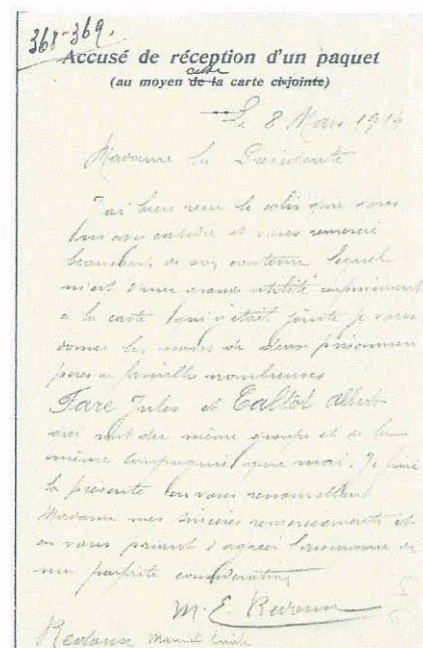 368-369.
Accusé de réception d'un paquet
cette
(au moyen de la carte ci-jointe)
Le 8 Mars 191
Madame la Présidente
J'ai bien reçu le colis que vous
avez et vous remercie
beaucoup de son contenu lequel
m'est d'une grande utilité
à la carte qui y était jointe je vous
donne les noms de deux prisonniers
pères de familles nombreuses
Fare Jules et Taltot Albert
qui sont du même groupe et de la
même compagnie que moi. Je finis
la présente en vous renouvellant
Madame mes sincères remerciements et
en vous priant d'agréer l'assurance de
ma parfaite considération
M. E.